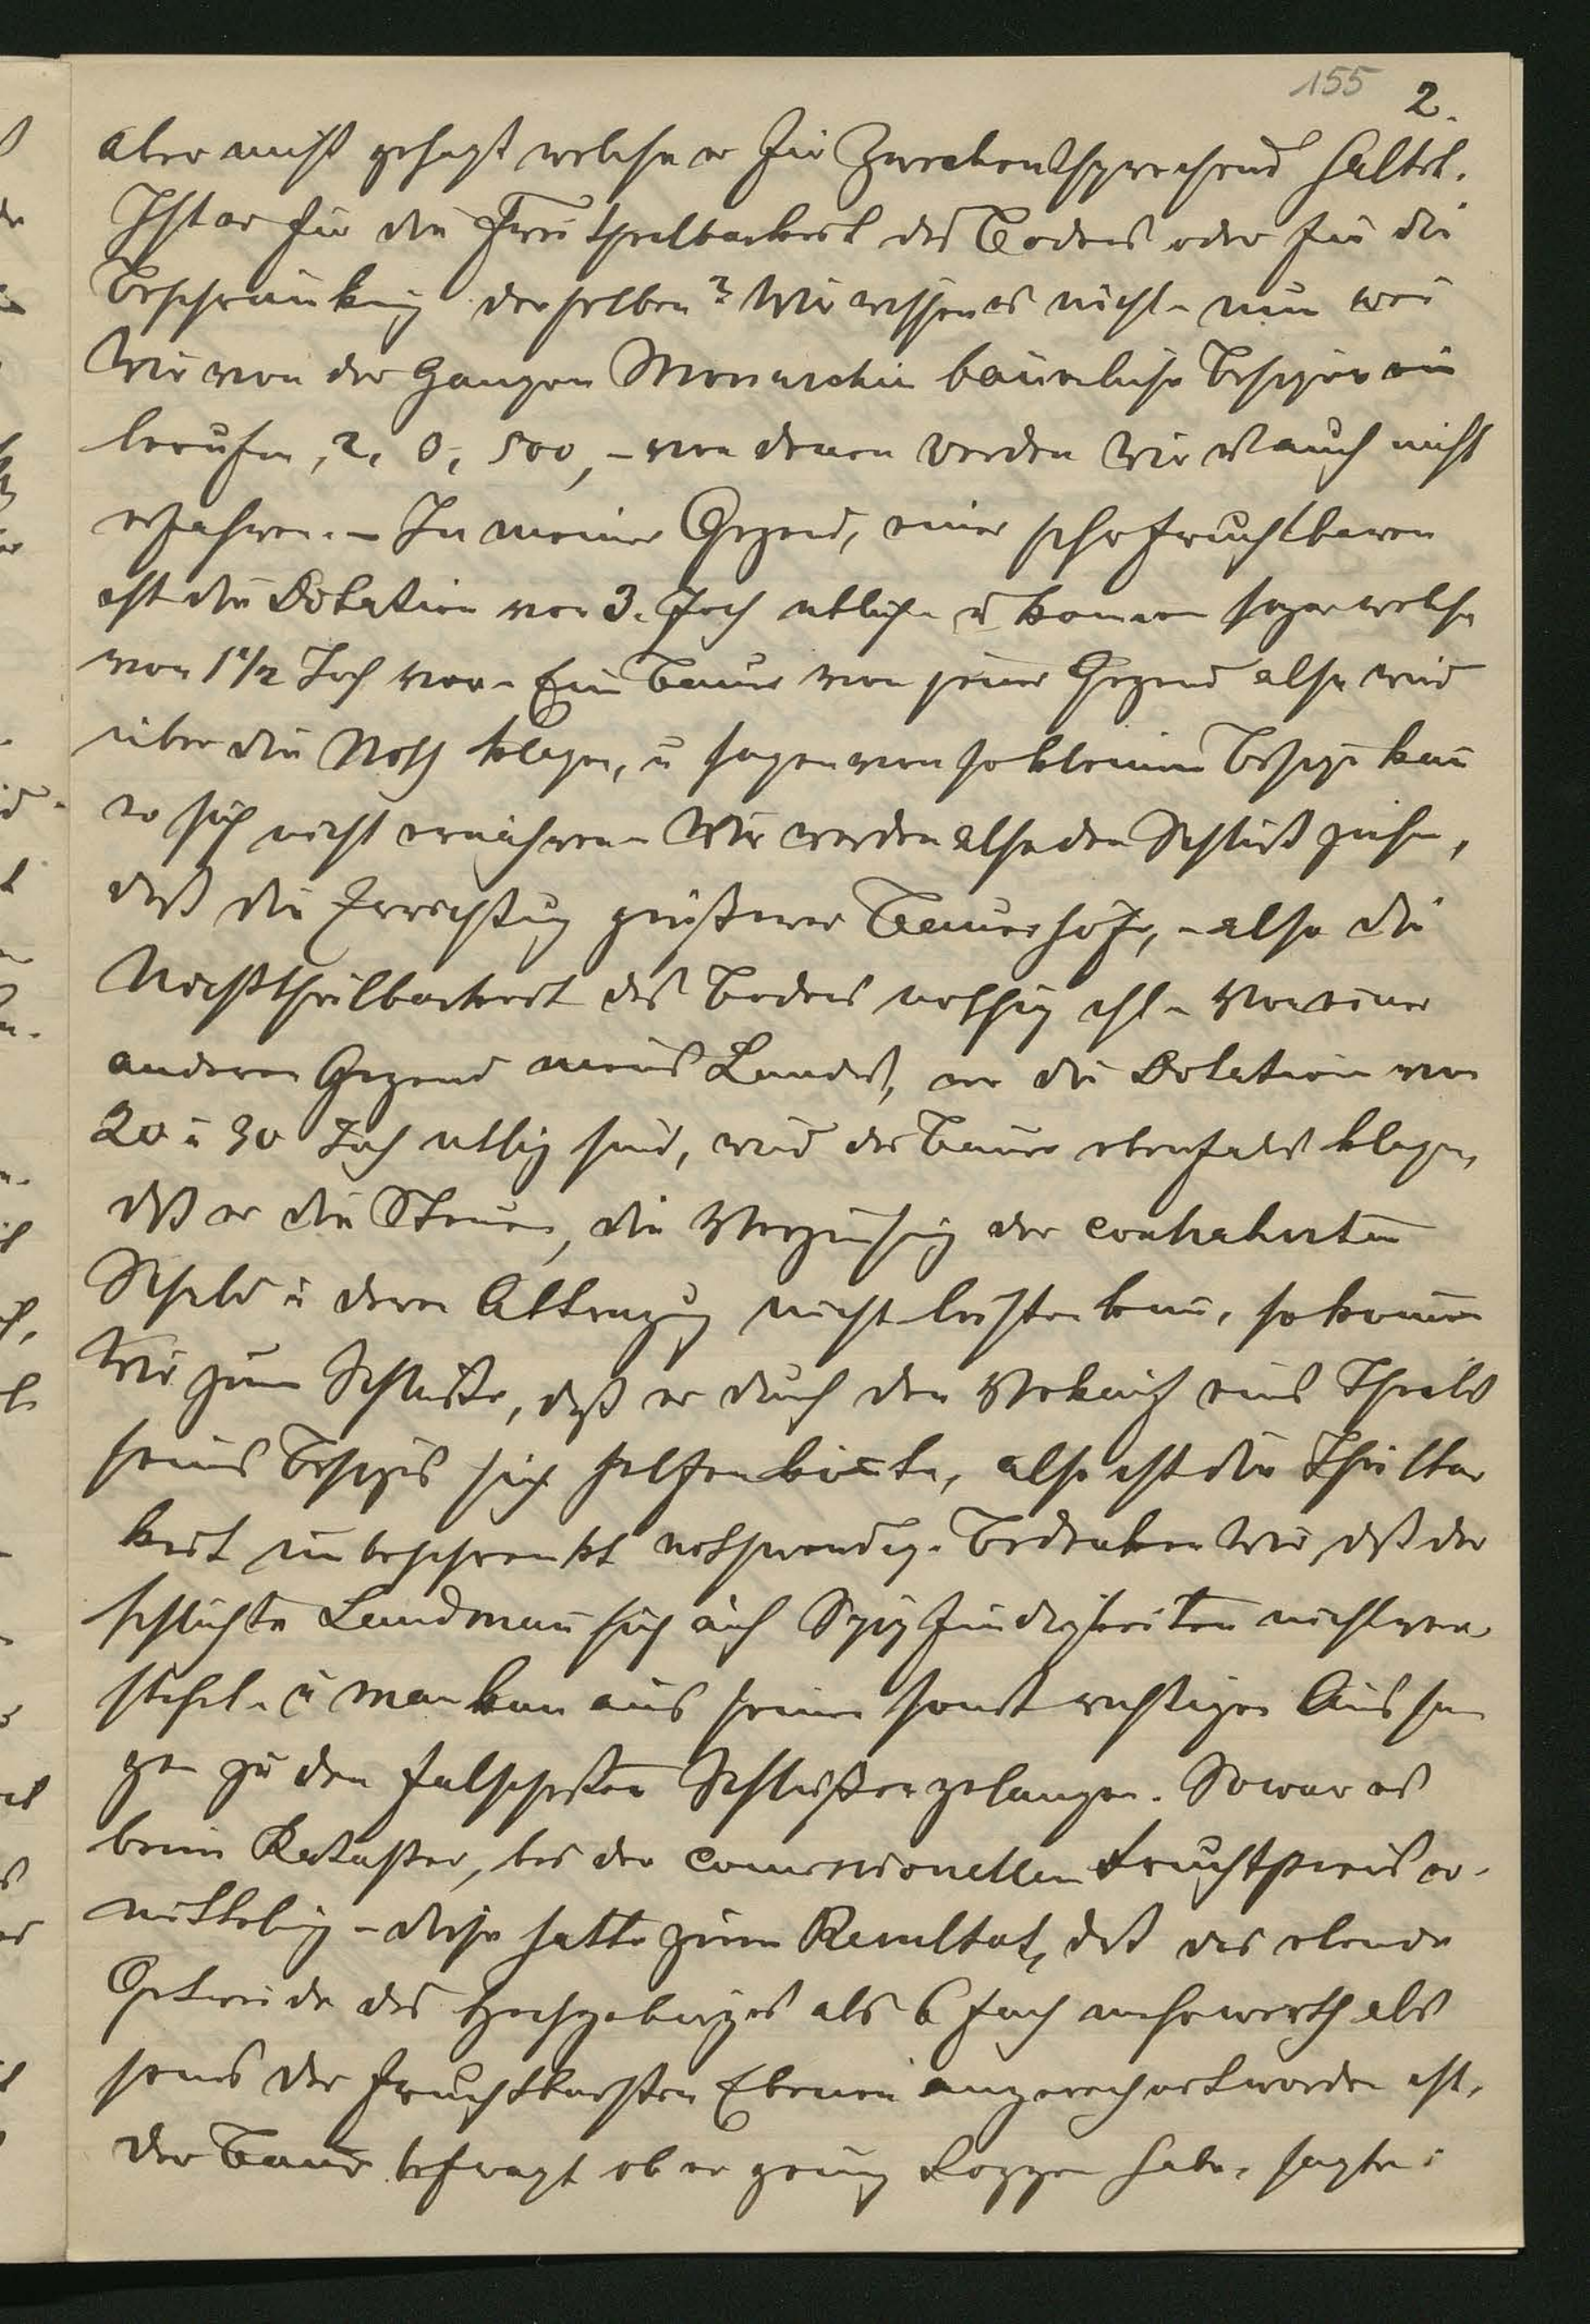 155 2.
aber nicht gesagt welche er für Zweckentsprechend haltet.
Ist er für die Freitheilbarkeit des Bodens oder für die
Beschränkung derselben? Wir wissen es nicht - nun wenn
Wir von der Ganzen Monarchie bäuerliche Besitzer ein
berufen, 2, 500, - von denen werden Wir es auch nicht
erfahren. - In meiner Gegend, einer sehr fruchtbaren
ist die Dotation von 3. Joch üblich u kommen sogar welche
von 1 1/2 Joch vor - Ein Bauer von jener Gegend also wird
über die Noth klagen, u sagen von so kleinem Besitze kann
er sich nicht ernähren - Wir werden also den Schluß ziehen,
daß die Errichtung größerer Bauerhöfe, - also die
Nichttheilbarkeit des Bodens nothig ist - Von einer
anderen Gegend meines Landes, wo die Dotation von
20 u 30 Joch üblich sind, wird der Bauer ebenfalls klagen,
daß er die Steuern, die Verzinsung der contrahirten
Schuld u deren Abtragung nicht leisten kann, so kommen
Wir zum Schluße, daß er durch den Verkauf eines Theils
seines Besitzes sich helfen könnte, also ist die Theilbar
keit unbeschrenkt nothwendig. Bedenken Wir, daß der
schlichte Landmann sich auf Spitzfindigkeiten nicht ver-
steht - u man kann aus seinen sonst richtigen Aussa
gen zu den falschesten Schlüßen gelangen. So war es
beim Kataster, bei der commissionellen Fruchtpreis er-
mittelung - diese hatte zum Resultat, daß das elende
Getreide des Hochgebirges als 6 fach mehrwerth als
jenes der fruchtbarsten Ebenen angerechnet worden ist.
Der Bauer befragt ob er genug Roggen habe, sagte: